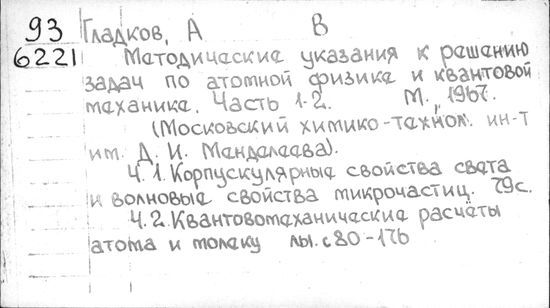 93 Гладков, А В
6221 Методические указания к решению
задач по атомной физике и квантовой
механике. Часть 1-2. М., 1967.
(Московский химико-технол. ин-т
им. Д. И. Менделеева).
Ч. 1. Корпускулярные свойства света
и волновые свойства микрочастиц. 79с.
Ч. 2. Квантовомеханические расчеты
атома и молеку лы. с 80-176